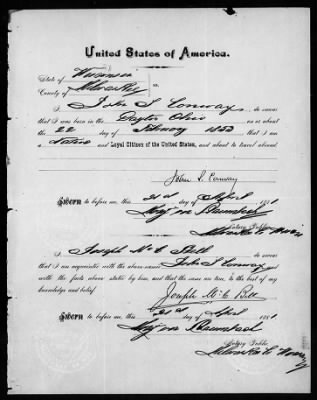 United States of America.
State of Wisconsin
County of Milwaukee ss.
I John S Conway, do swear
that I was born in the Dayton Ohio on or about
the 22 day of February 1853 that I am
a Native and Loyal Citizen of the United States, and about to travel abroad.
John S. Conway
Sworn to before me, this 21st day of April 1881
Notary Public
Milwaukee
I Joseph McC Bell do swear
that I am acquainted with the above named John S Conway and
with the facts above stated by him, and that the same are true, to the best of my
knowledge and belief.
Joseph McC Bell
Sworn to before me, this 21st day of April 1881
Notary Public
Milwaukee